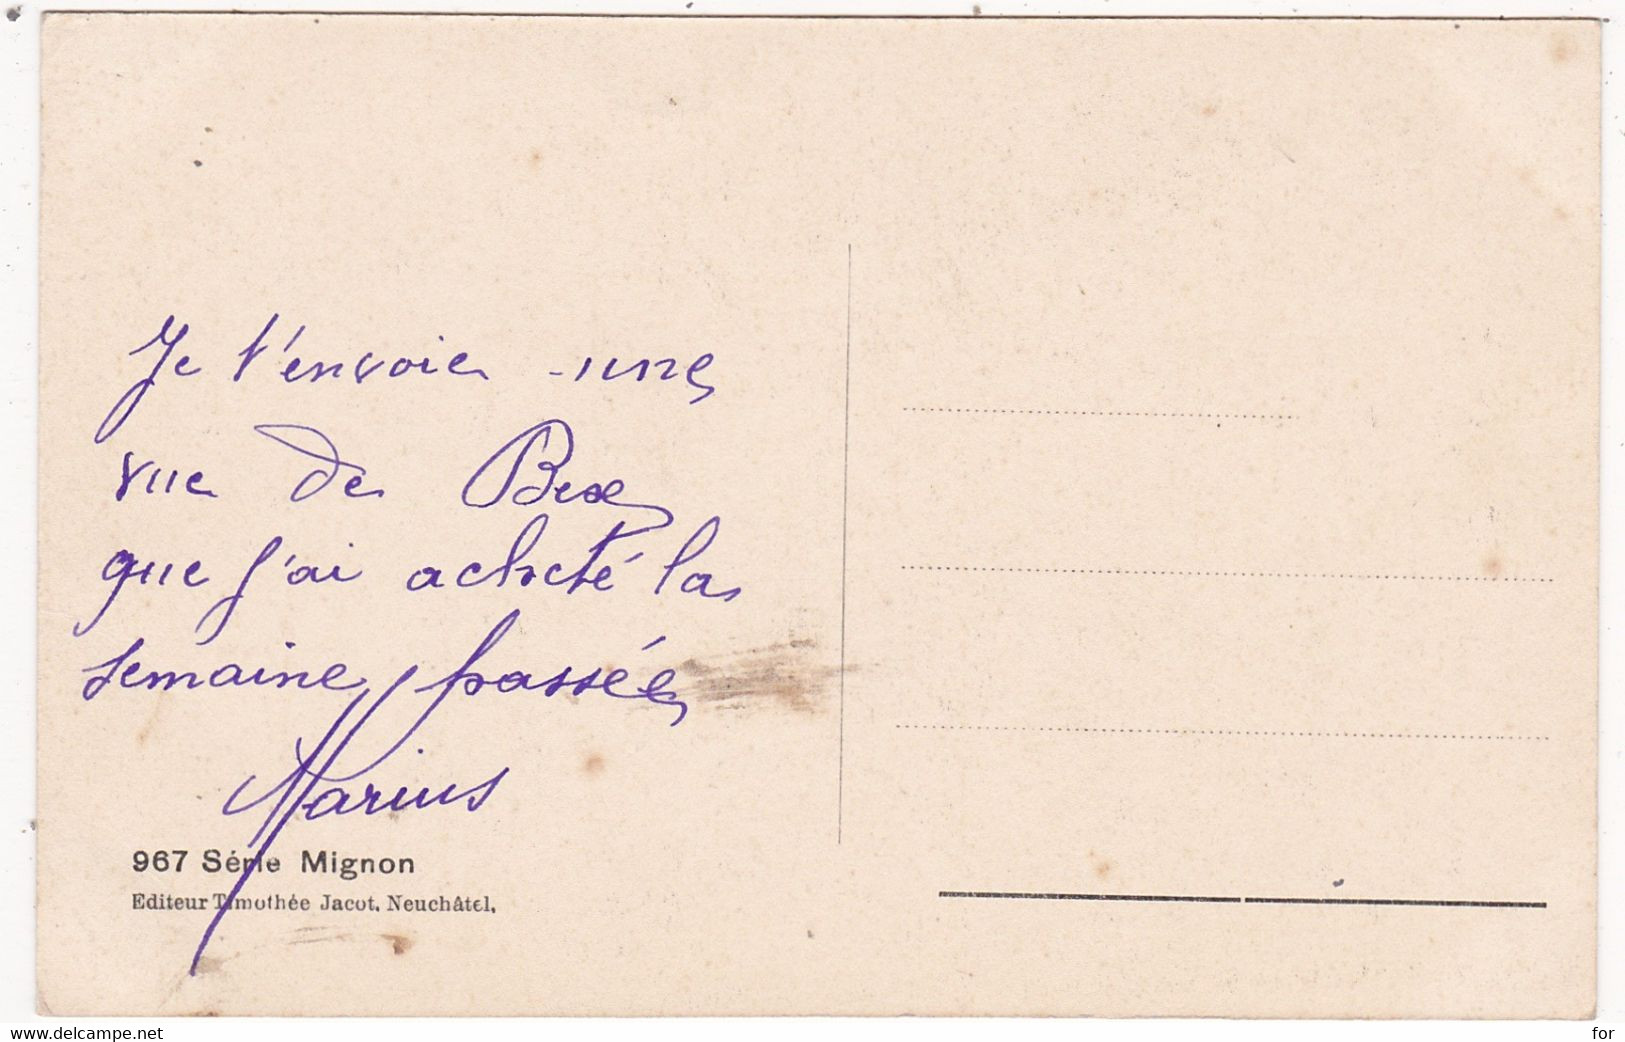 Je t'envoie une
vue de Bex
que j'ai acheté la
semaine passée
Marius
967 Série Mignon
Editeur Timothée Jacot, Neuchâtel,
www.delcampe.net
for